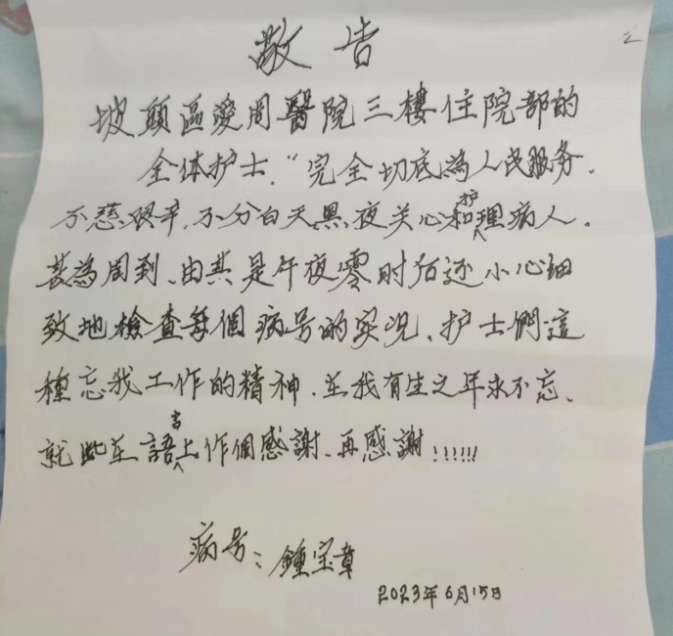 敬告
坡頭區愛周醫院三樓住院部的
全体护士.“完全切底為人民服务.
不慈艰辛,不分白天黑夜关心和护理病人.
甚為周到.由其是午夜零时后还小心细
致地檢查每個病号的实况、护士們這
種忘我工作的精神.在我有生之年永不忘、
就此在語言上作個感謝.再感謝!!!!!!
病号:鍾宝章
2023年6月15日